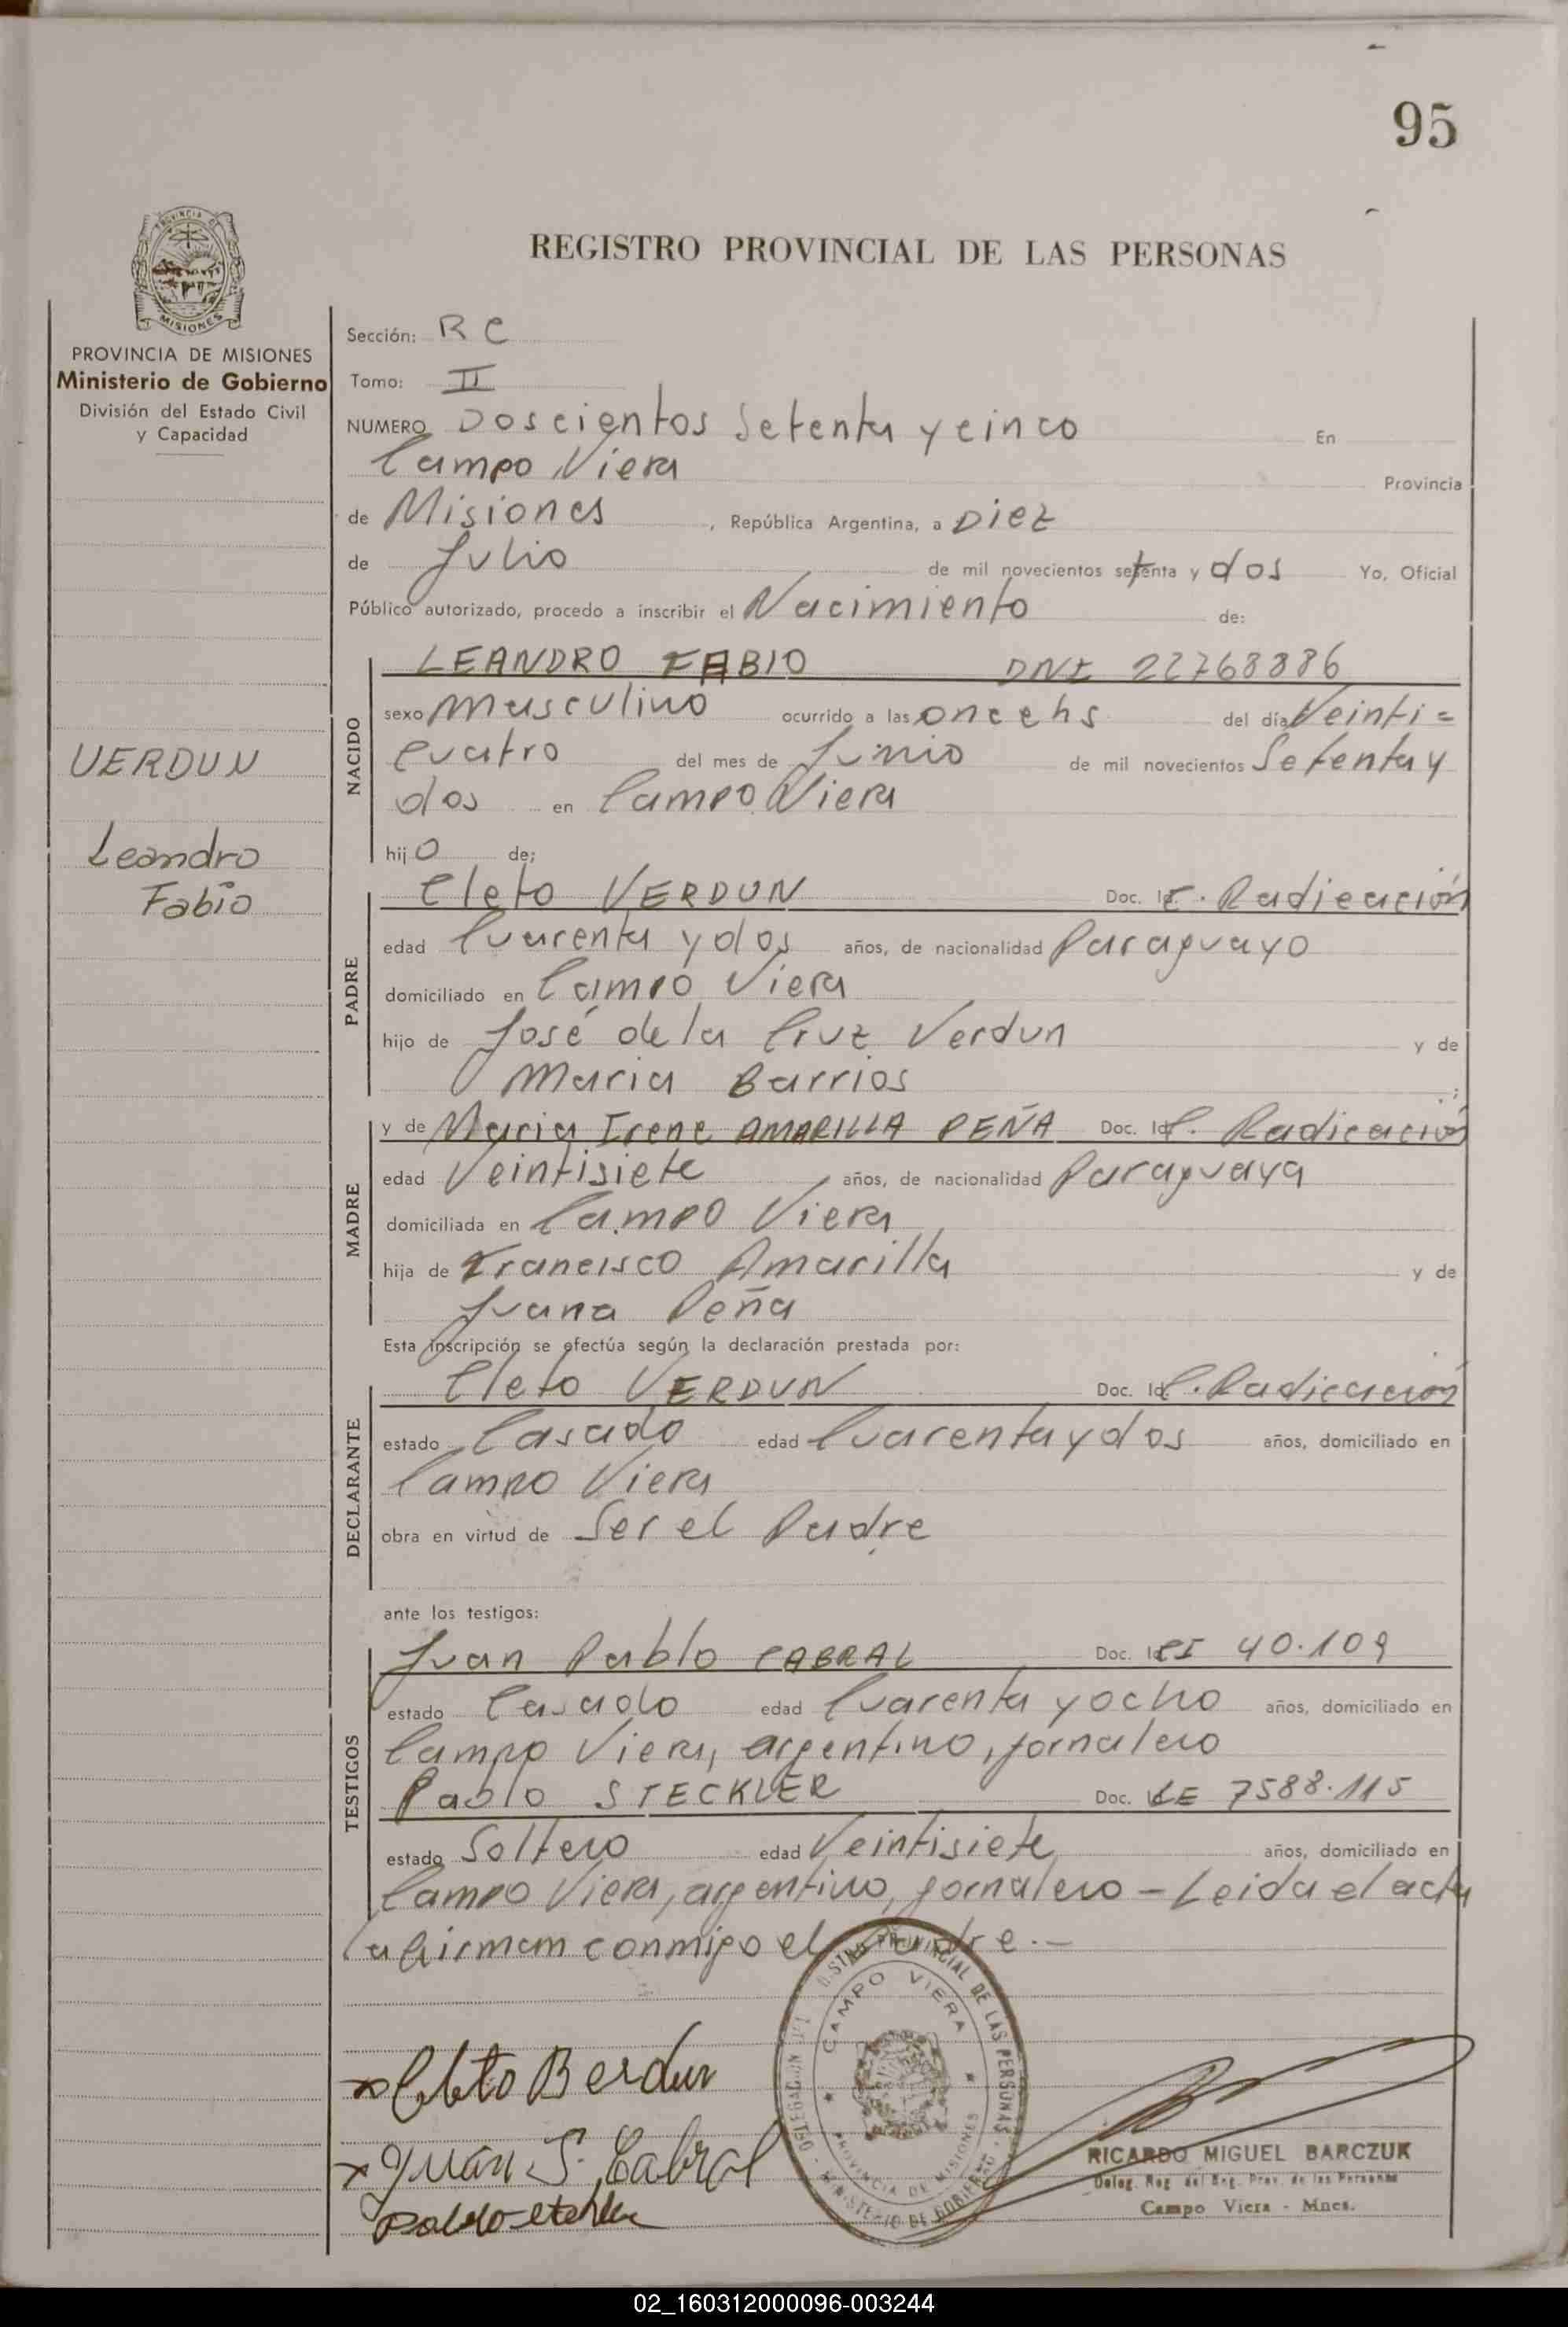 95
REGISTRO PROVINCIAL DE LAS PERSONAS
PROVINCIA DE MISIONES
Ministerio de Gobierno
División del Estado Civil
y Capacidad
VERDUN
Leandro
Fabio
Sección: R C
Tomo: II
NUMERO Doscientos Setenta y cinco En
Campo Viera Provincia
de Misiones, República Argentina, a Diez
de Julio de mil novecientos setenta y dos Yo, Oficial
Público autorizado, procedo a inscribir el Nacimiento de:
NACIDO
LEANDRO FABIO DNI 22768886
sexo masculino ocurrido a las once hs del día Veinti=
cuatro del mes de Junio de mil novecientos Setenta y
dos en Campo Viera
hijo de;
PADRE
Cleto VERDUN Doc. Id C. Radicación
edad Cuarenta y dos años, de nacionalidad Paraguayo
domiciliado en Campo Viera
hijo de José de la Cruz Verdun y de
Maria Barrios
MADRE
y de Maria Irene AMARILLA PEÑA Doc. Id C. Radicación
edad Veintisiete años, de nacionalidad Paraguaya
domiciliada en Campo Viera
hija de Francisco Amarilla y de
Juana Peña
Esta inscripción se efectúa según la declaración prestada por:
DECLARANTE
Cleto VERDUN Doc. Id C. Radicación
estado Casado edad Cuarenta y dos años, domiciliado en
Campo Viera
obra en virtud de Ser el Padre
ante los testigos:
TESTIGOS
Juan Pablo CABRAL Doc. Id CI 40.109
estado Casado edad Cuarenta y ocho años, domiciliado en
Campo Viera, argentino, jornalero
Pablo STECKLER Doc. LE 7588.115
estado Soltero edad Veintisiete años, domiciliado en
Campo Viera, argentino, jornalero - Leida el acta
la firman conmigo el padre.-
Cleto Berdun
Juan S. Cabral
DELEGACION REGISTRO PROVINCIAL DE LAS PERSONAS
CAMPO VIERA
PROVINCIA DE MISIONES
MINISTERIO DE GOBIERNO
RICARDO MIGUEL BARCZUK
Deleg. Reg. del Reg. Prov. de las Personas
Campo Viera - Mnes.
02_160312000096-003244